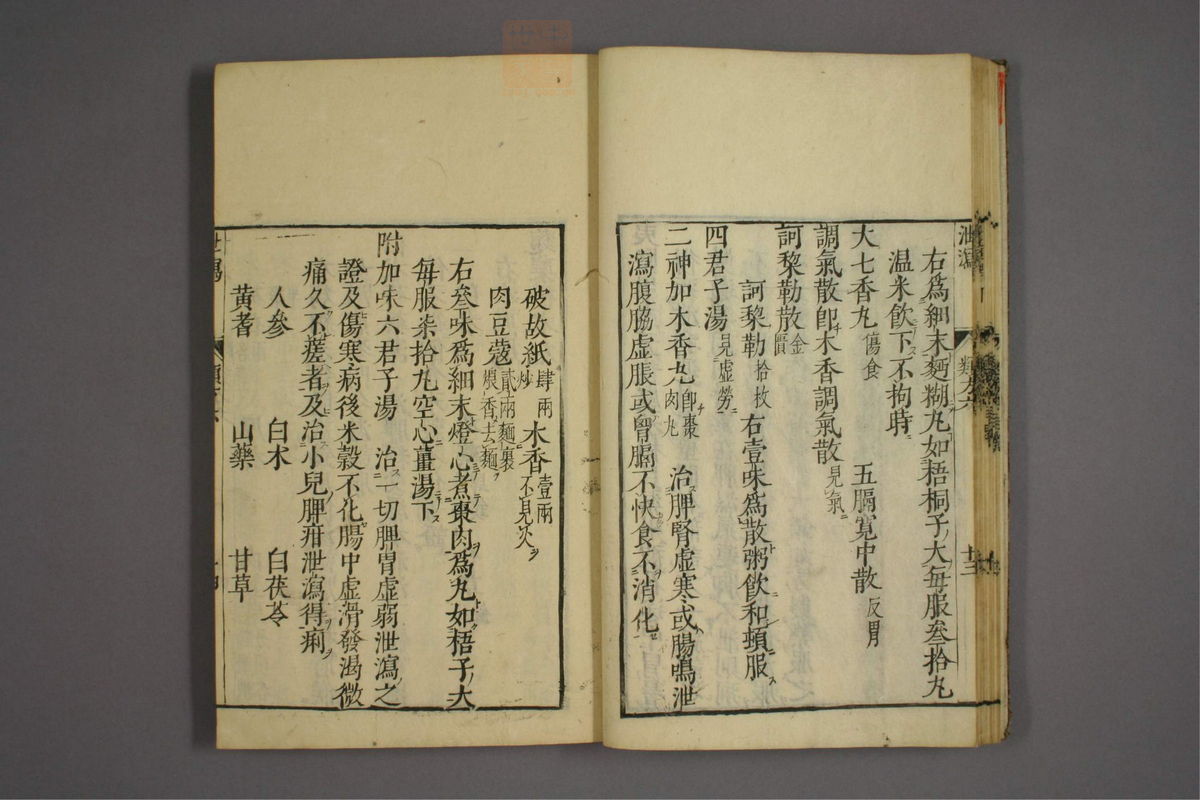 右爲細末麪糊丸如梧桐子大每服叄拾丸
温米飲下不拘時
大七香丸傷食　五膈寬中散反胃
調氣散卽木香調氣散見氣
訶黎勒散金匱
訶黎勒拾枚　右壹味爲散粥飲和頓服
四君子湯見虛勞
二神加木香丸卽棗肉丸　治脾腎虛寒或腸鳴泄
瀉腹脇虛脹或胷膈不快食不消化
破故紙肆兩炒　木香壹兩不見火
肉豆蔻貳兩麵裹煨香去麵
右叄味爲細末燈心煮棗肉爲丸如梧子大
每服柒拾丸空心薑湯下
附加味六君子湯　治一切脾胃虛弱泄瀉之
證及傷寒病後米穀不化腸中虛滑發渴微
痛久不瘥者及治小兒脾疳泄瀉得痢
人參　白朮　白茯苓
黃耆　山藥　甘草